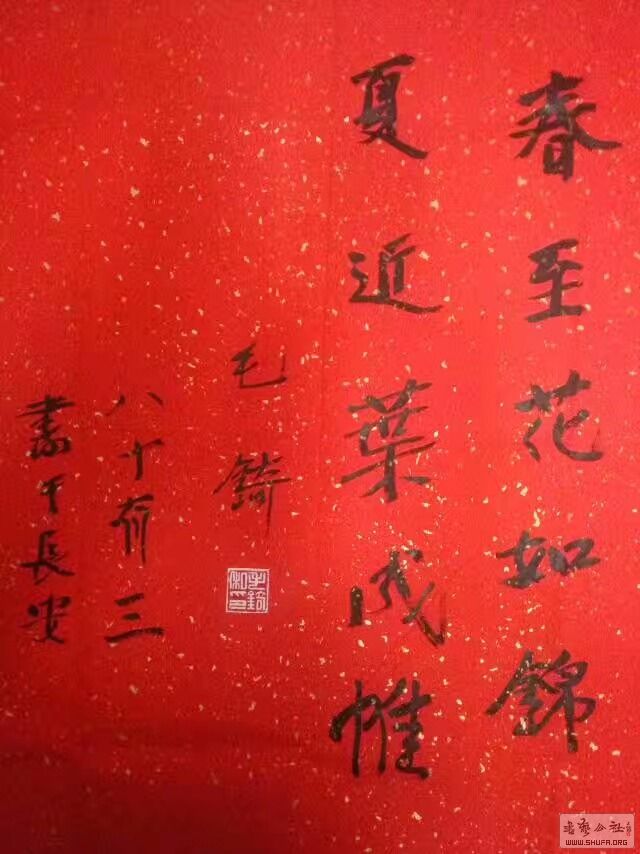 春至花如錦
夏近葉成帷
毛錡
八十有三
書于長安
WWW.SHUFA.ORG